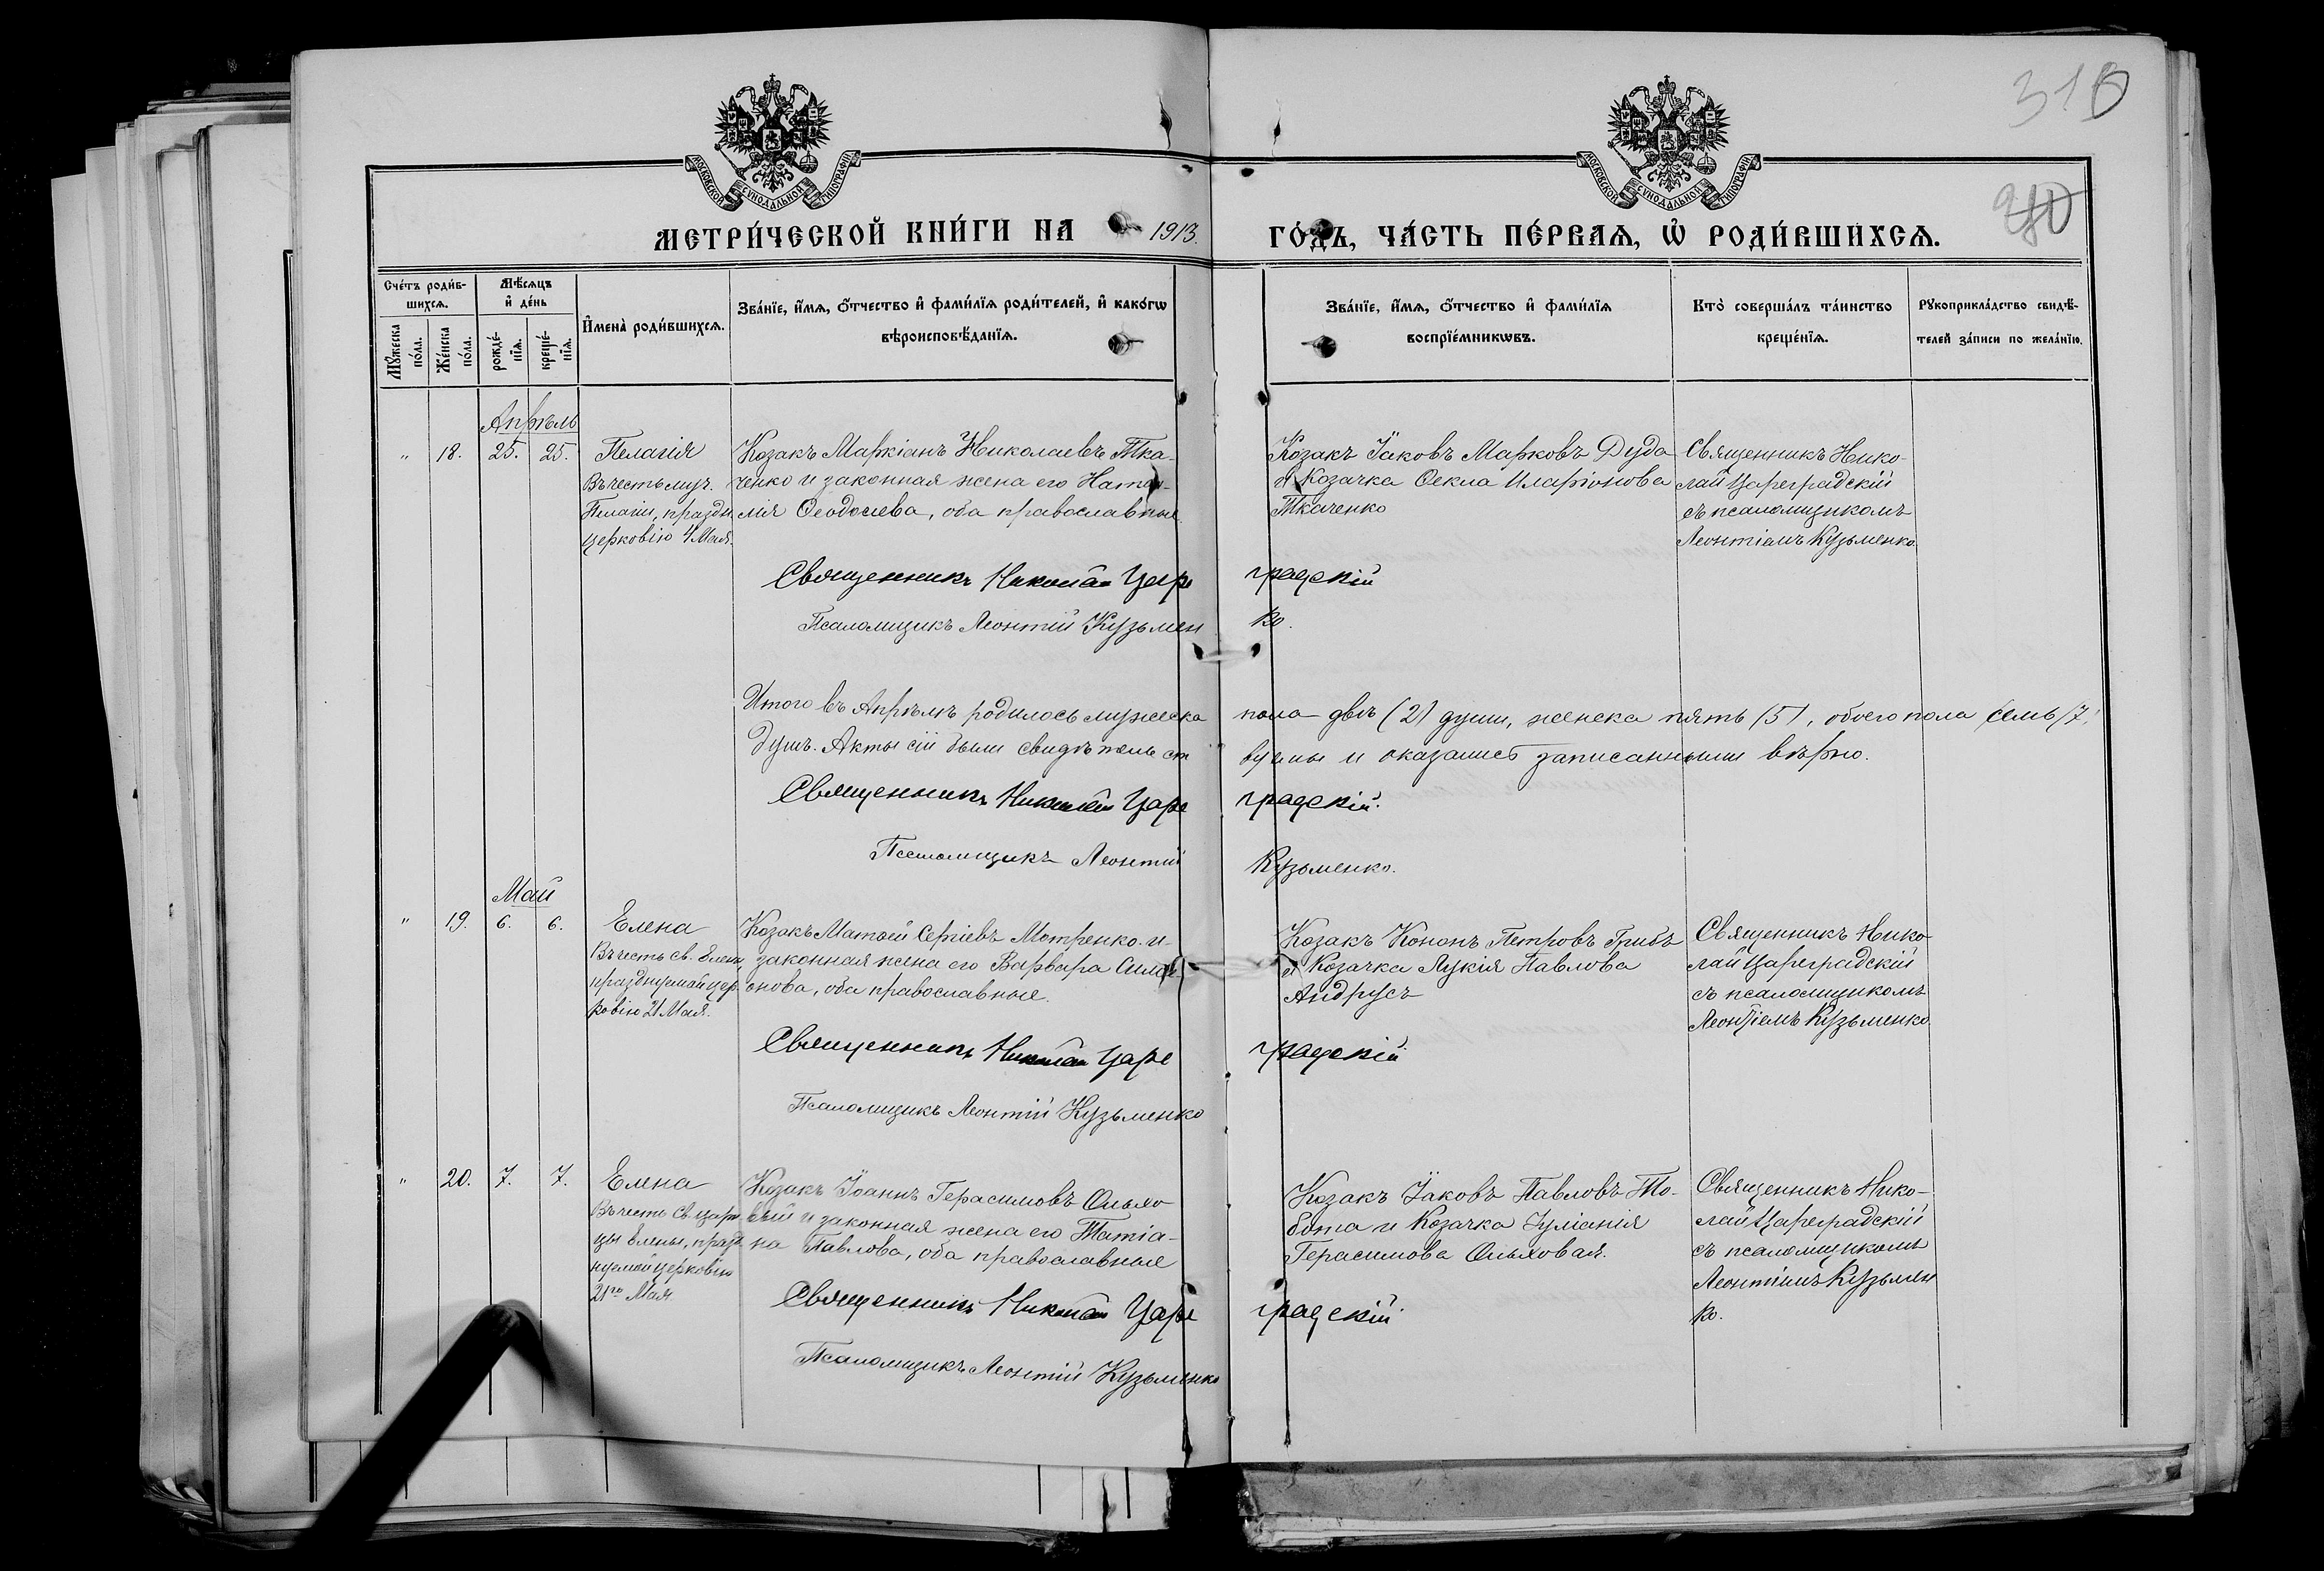 318
МОСКОВСКОЙ СУНОДАЛЬНОЙ ТИПОГРАФІИ
МОСКОВСКОЙ СУНОДАЛЬНОЙ ТИПОГРАФІИ
МЕТРИ́ЧЕСКОЙ КНИ́ГИ НА 1913. ГО́ДЪ, ЧА́СТЬ ПЕ́РВАѦ, Ѡ҆ РОДИ́ВШИХСѦ.
Сче́тъ роди́в-
шихсѧ.
Мѣ́сяцъ
и҆ де́нь
Мꙋ́жеска
по́ла.
Же́нска
по́ла.
рожде́-
нїѧ.
креще́-
нїѧ.
И҆мена̀ роди́вшихсѧ.
Зва́нїе, и҆́мѧ, ѻ҆́тчество и҆ фами́лїѧ роди́телей, и҆ како́гѡ
вѣроисповѣ́данїѧ.
Зва́нїе, и҆́мѧ, ѻ҆́тчество и҆ фами́лїѧ
воспрїе́мникѡвъ.
Кто̀ соверша́лъ та́инство
креще́нїѧ.
Рꙋкоприкла́дство свидѣ́-
телей за́писи по жела́нїю.
Апрѣль
" 18. 25. 25.
Пелагія
Въ честь муч.
Пелагіи, праздн
церковію 4 Мая.
Козакъ Маркіанъ Николаевъ Тка-
ченко и законная жена его Ната-
лія Ѳеодосіева, оба православные.
Козакъ Іаковъ Марковъ Дуда
и Козачка Ѳекла Иларіонова
Ткаченко
Священникъ Нико-
лай Цареградскій
съ псаломщикомъ
Леонтіемъ Кузьменко.
Священникъ Николай Царе градскій
Псаломщикъ Леонтій Кузьмен ко.
Итого въ Апрѣлѣ родилось мужеска пола двѣ (2) души, женска пять (5), обоего пола семь (7)
душъ. Акты сіи были свидѣтельст вуемы и оказались записанными вѣрно.
Священникъ Николай Царе градскій.
Псаломщикъ Леонтій Кузьменко.
Май
" 19. 6. 6.
Елена
Въ честь св. Елены,
празднуемой цер-
ковію 21 Мая.
Козакъ Матѳей Сергіевъ Мотренко и
законная жена его Варвара Симе-
онова, оба православные.
Козакъ Кононъ Петровъ Грибъ
и Козачка Лукія Павлова
Андрусъ
Священникъ Нико
лай Цареградскій
съ псаломщикомъ
Леонтіемъ Кузьменко.
Священникъ Николай Царе градскій
Псаломщикъ Леонтій Кузьменко
" 20. 7. 7.
Елена
Въ честь св. цари
цы Елены, празд
нуемой церковію
21го Мая
Козакъ Іоаннъ Герасимовъ Ольхо
вый и законная жена его Татіа-
на Павлова, оба православные
Козакъ Іаковъ Павловъ То-
бота и Козачка Іуліанія
Герасимова Ольховая.
Священникъ Нико-
лай Цареградскій
съ псаломщикомъ
Леонтіемъ Кузьмен
ко.
Священникъ Николай Царе градскій.
Псаломщикъ Леонтій Кузьменко